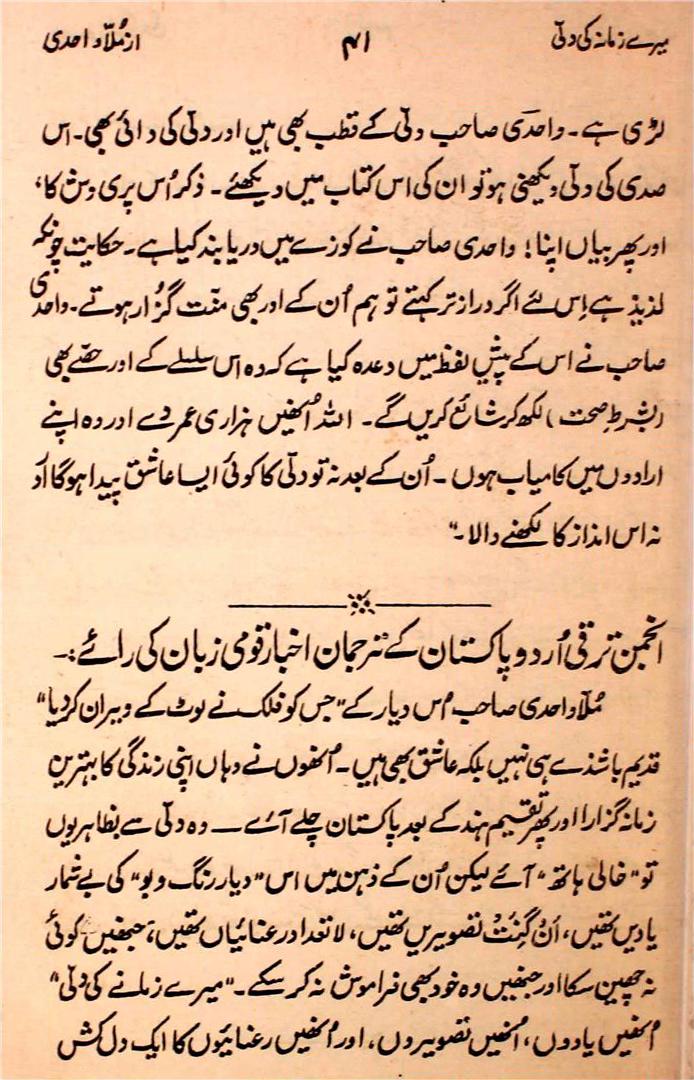 میرے زمانہ کی دلّی ۴۱ از مُلّا واحدی
لڑی ہے۔ واحدی صاحب دلّی کے قطب بھی ہیں اور دلّی کی دائی بھی۔ اس
صدی کی دلّی دیکھنی ہو تو ان کی اس کتاب میں دیکھئے۔ ذکر اُس پری وش کا،
اور پھر بیاں اپنا! واحدی صاحب نے کوزے میں دریا بند کیا ہے۔ حکایت چونکہ
لذیذ ہے اِس لئے اگر دراز تر کہتے تو ہم اُن کے اور بھی منّت گزار ہوتے۔ واحدی
صاحب نے اس کے پیش لفظ میں وعدہ کیا ہے کہ وہ اس سلسلے کے اور حصّے بھی
(بشرطِ صحت) لکھ کر شائع کریں گے۔ اللہ اُنھیں ہزاری عمر دے اور وہ اپنے
ارادوں میں کامیاب ہوں۔ اُن کے بعد نہ تو دلّی کا کوئی ایسا عاشق پیدا ہوگا اَور
نہ اس انداز کا لکھنے والا۔"
انجمن ترقی اُردو پاکستان کے ترجمان اخبار قومی زبان کی رائے :۔
مُلّا واحدی صاحب اُس دیار کے "جس کو فلک نے لوٹ کے ویران کر دیا"
قدیم باشندے ہی نہیں بلکہ عاشق بھی ہیں۔ اُنھوں نے وہاں اپنی زندگی کا بہترین
زمانہ گزارا اور پھر تقیسم ہند کے بعد پاکستان چلے آئے — وہ دلّی سے بظاہر یوں
تو "خالی ہاتھ" آئے لیکن اُن کے ذہن میں اس "دیارِ رنگ و بو" کی بے شمار
یادیں تھیں، اَن گِنَتْ تصویریں تھیں، لاتعداد رعنائیاں تھیں، جنھیں کوئی
نہ چھین سکا اور جنھیں وہ خود بھی فراموش نہ کر سکے۔ "میرے زمانے کی دلّی"
اُنھیں یادوں، اُنھیں تصویروں، اور اُنھیں رعنائیوں کا ایک دل کش